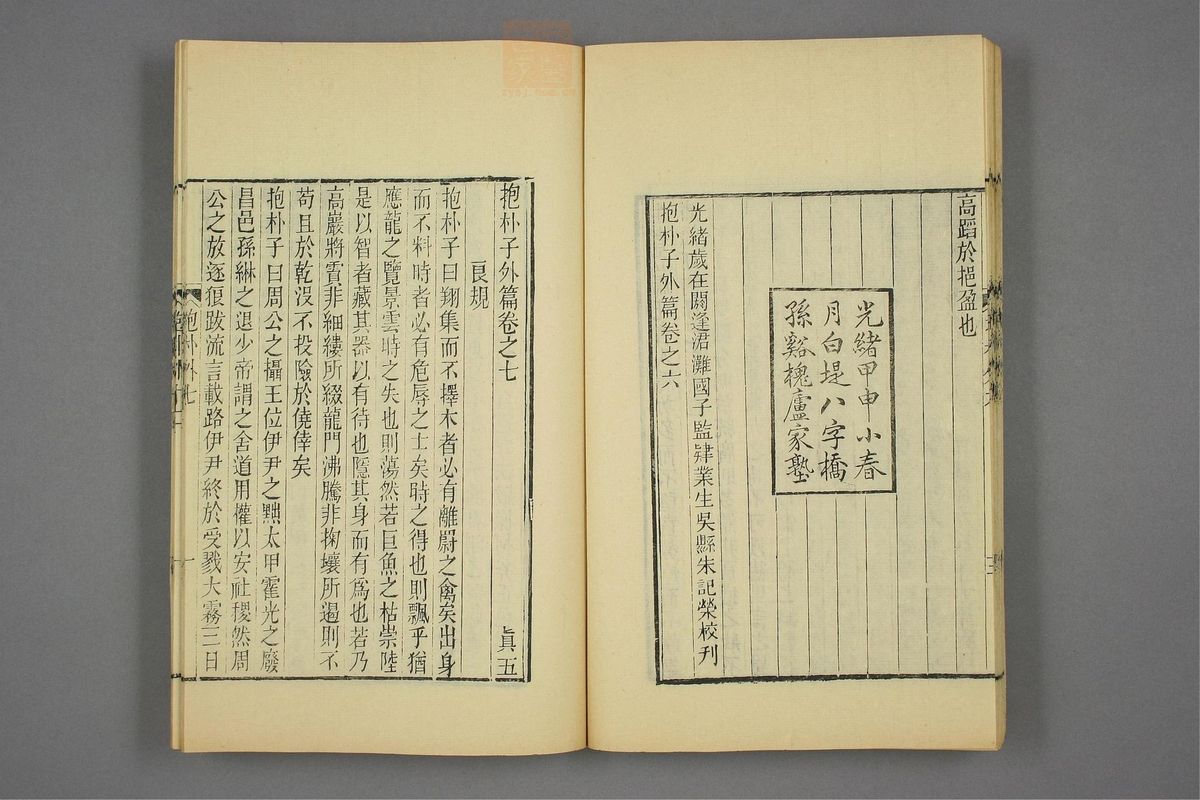 高蹈於挹盈也
光緒甲申小春
月白堤八字橋
孫谿槐廬家塾
光緒歲在閼逢涒灘國子監肄業生吳縣朱記榮校刊
抱朴子外篇卷之六
抱朴子外篇卷之七 眞五
良規
抱朴子曰翔集而不擇木者必有離罻之禽矣出身
而不料時者必有危辱之士矣時之得也則飄乎猶
應龍之覽景雲時之失也則蕩然若巨魚之枯崇陸
是以智者藏其器以有待也隱其身而有爲也若乃
高巖將霣非細縷所綴龍門沸騰非掬壤所遏則不
苟且於乾沒不投險於僥倖矣
抱朴子曰周公之攝王位伊尹之黜太甲霍光之廢
昌邑孫綝之退少帝謂之舍道用權以安社稷然周
公之放逐狼跋流言載路伊尹終於受戮大霧三日
抱朴外七